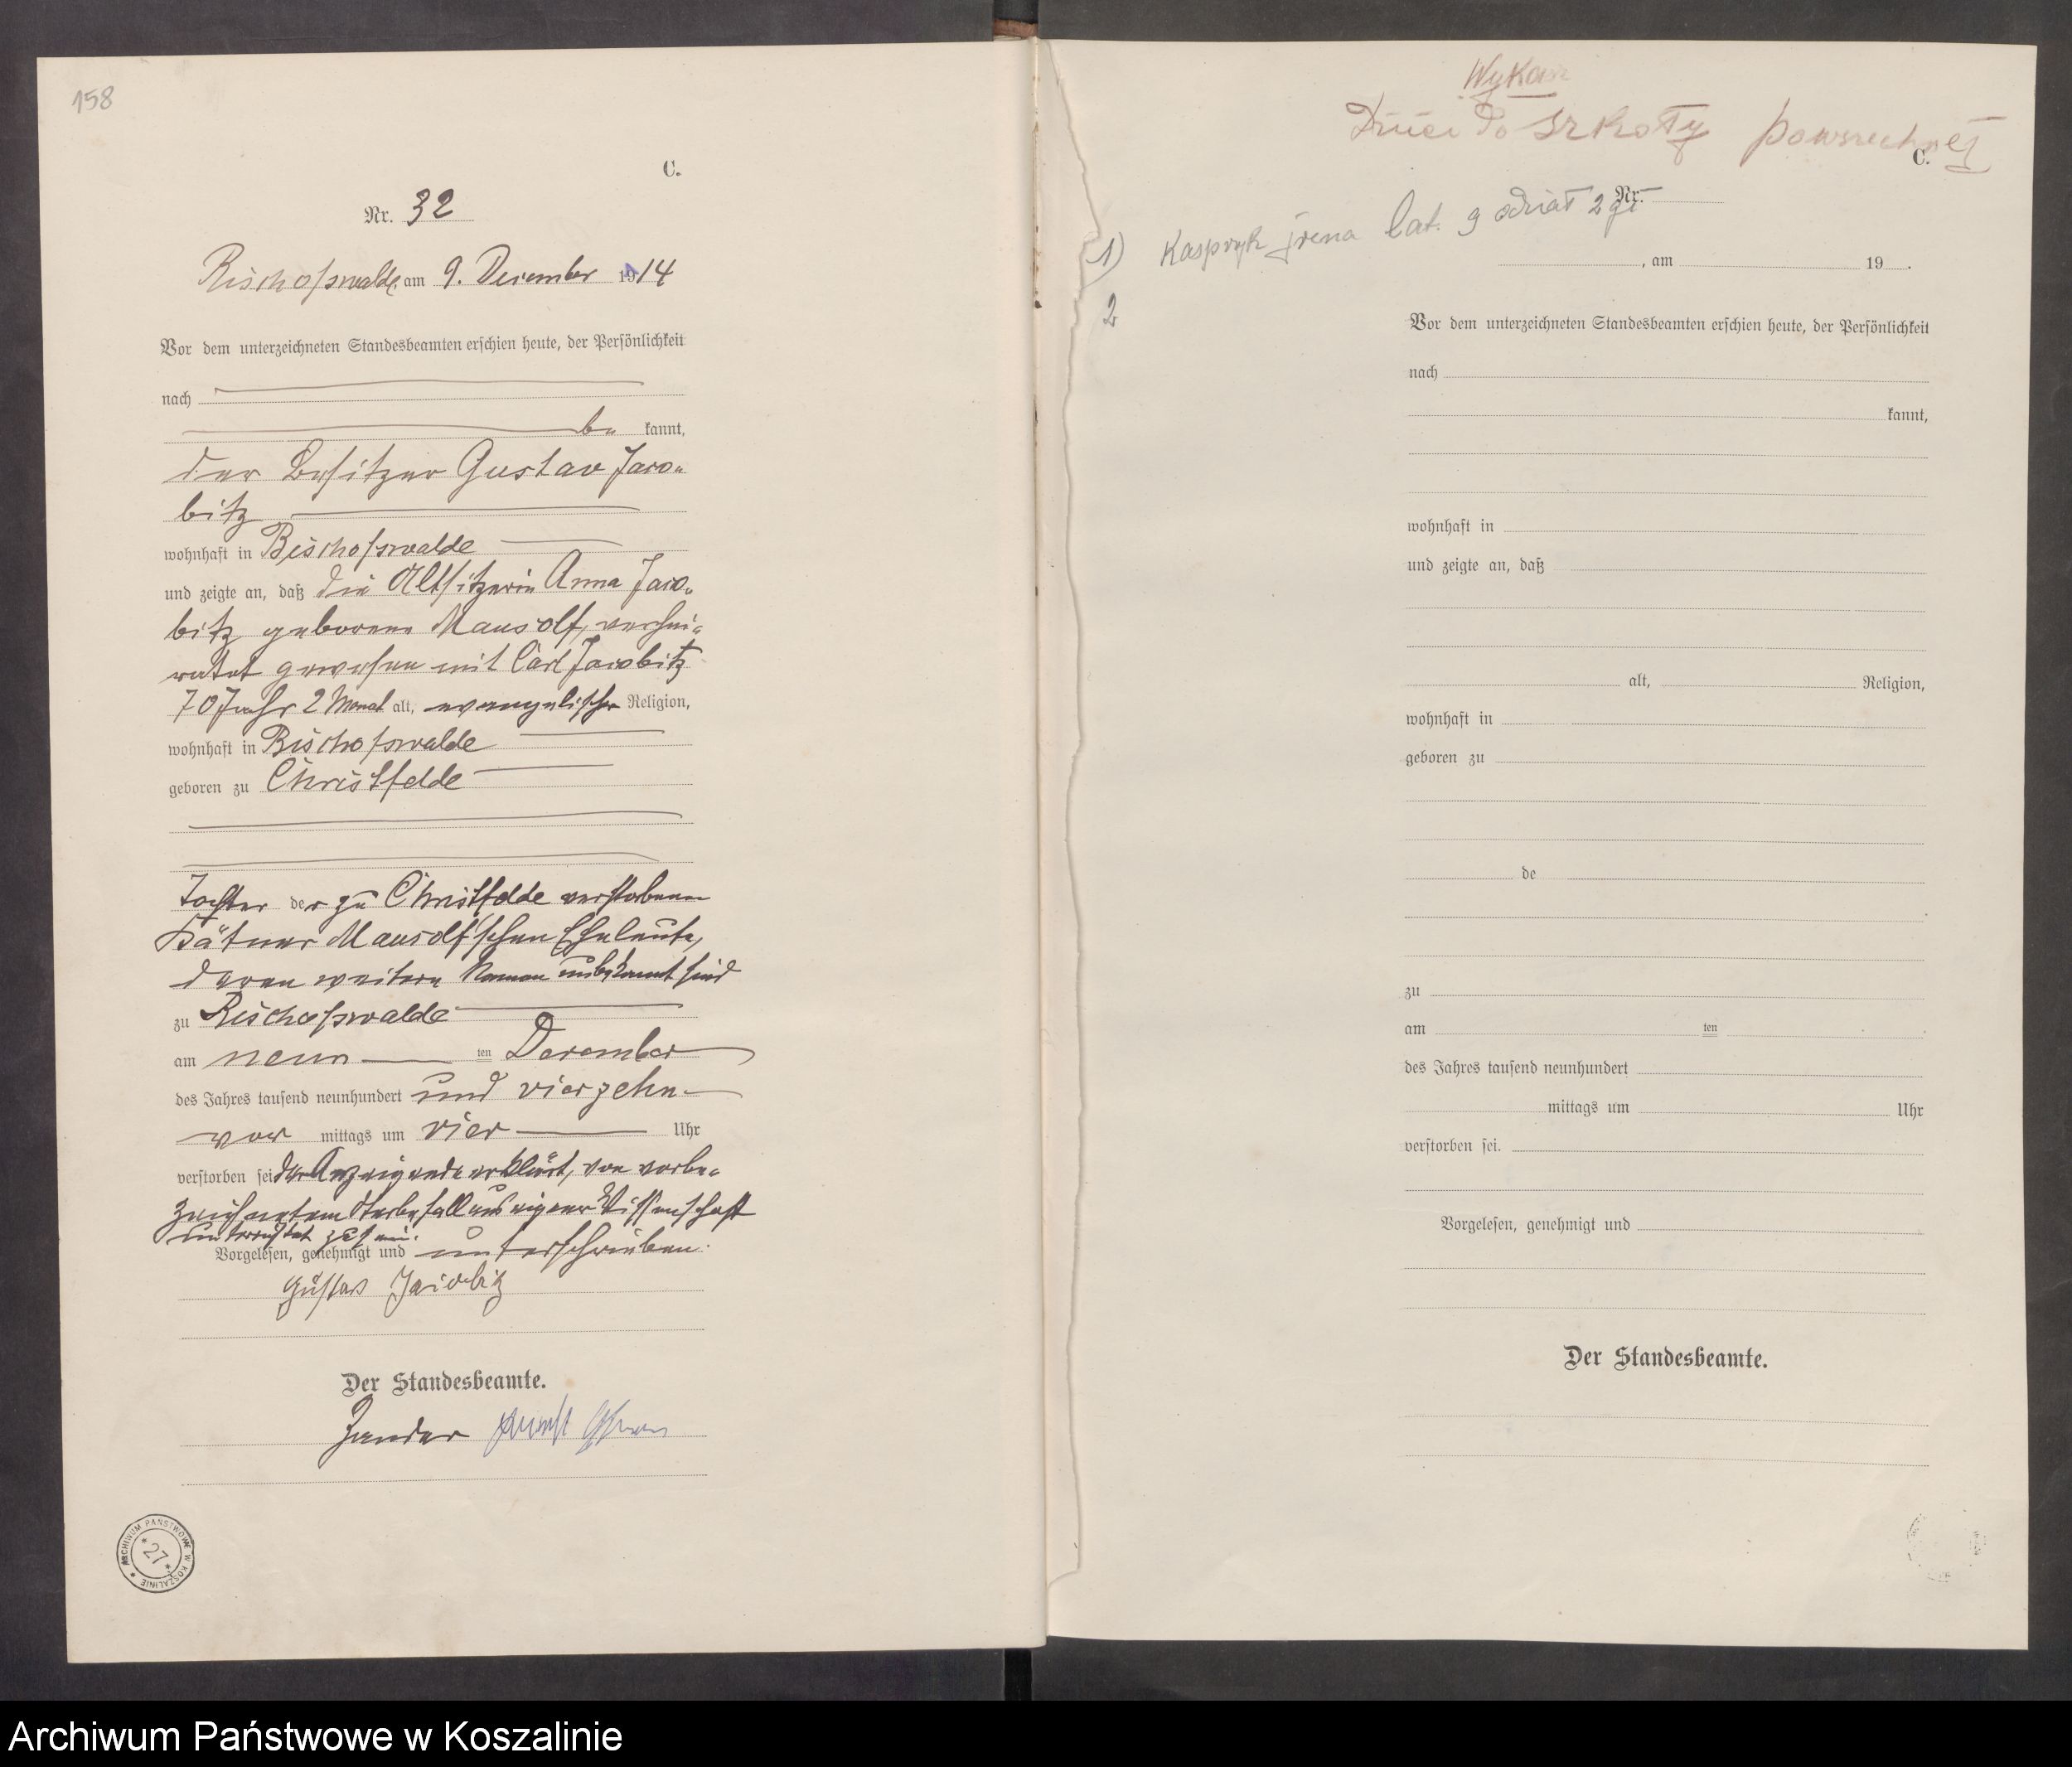 158
C.
Nr. 32
Bischofswalde, am 9. Dezember 1914
Vor dem unterzeichneten Standesbeamten erschien heute, der Persönlichkeit
nach
be kannt,
der Besitzer Gustav Jaco-
bitz
wohnhaft in Bischofswalde
und zeigte an, daß die Altsitzerin Anna Jaco-
bitz geborene Mausolf, verhei-
ratet gewesen mit Carl Jacobitz
70 Jahr 2 Monat alt, evangelischer Religion,
wohnhaft in Bischofswalde
geboren zu Christfelde
Tochter der zu Christfelde verstorbenen
Kätner Mausolf'schen Eheleute,
deren weitere Namen unbekannt sind
zu Bischofswalde
am neun ten Dezember
des Jahres tausend neunhundert und vierzehn
vor mittags um vier Uhr
verstorben sei der Anzeigende erklärt, von vorbe-
zeichnetem Sterbefall aus eigener Wissenschaft
unterrichtet zu sein.
Vorgelesen, genehmigt und unterschrieben.
Gustav Jacobitz
Der Standesbeamte.
Zander
ARCHIWUM PAŃSTWOWE W KOSZALINIE
* 27 *
Wykaz
Dzieci do szkoły powszechnej
C.
Nr.
1) Kasprzyk Jrena lat. 9 2gi
2
, am 19 .
Vor dem unterzeichneten Standesbeamten erschien heute, der Persönlichkeit
nach
kannt,
wohnhaft in
und zeigte an, daß
alt, Religion,
wohnhaft in
geboren zu
de
zu
am ten
des Jahres tausend neunhundert
mittags um Uhr
verstorben sei.
Vorgelesen, genehmigt und
Der Standesbeamte.
Archiwum Państwowe w Koszalinie